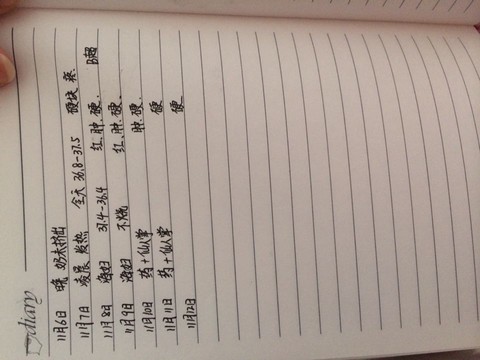 diary
11月6日 晚 奶太挤出
11月7日 凌晨 发热 全天 36.8-37.5 硬块 疼
11月8日 海妇 37.4-36.4 红.肿.硬. B超
11月9日 海妇 不烧 红.肿.硬.
11月10日 药+仙人掌 肿.硬.
11月11日 药+仙人掌 硬
11月12日 硬